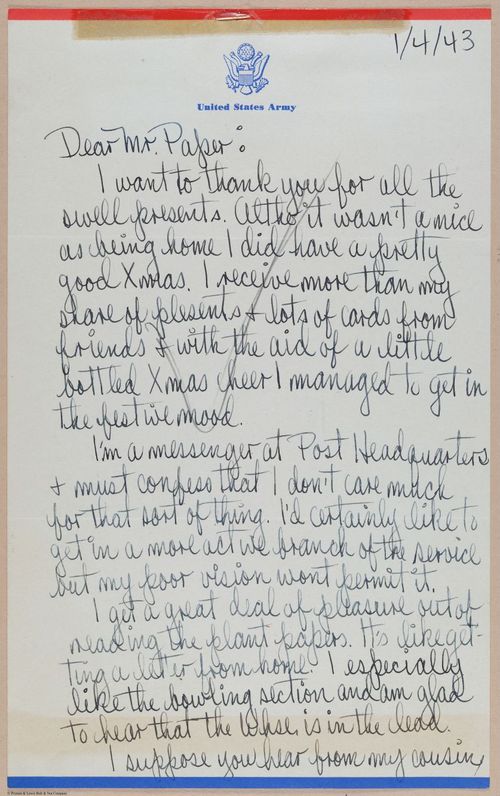 1/4/43
United States Army
Dear Mr. Paper:
I want to thank you for all the
swell presents. Altho it wasn't a nice
as being home I did have a pretty
good Xmas. I receive more than my
share of presents + lots of cards from
friends + with the aid of a little
bottled Xmas cheer I managed to get in
the festive mood.
I'm a messenger at Post Headquarters
+ must confess that I don't care much
for that sort of thing. I'd certainly like to
get in a more active branch of the service
but my poor vision wont permit it.
I get a great deal of pleasure out of
reading the plant papers. It's like get-
ting a letter from home. I especially
like the bowling section and am glad
to hear that the Whse. is in the lead.
I suppose you hear from my cousin,